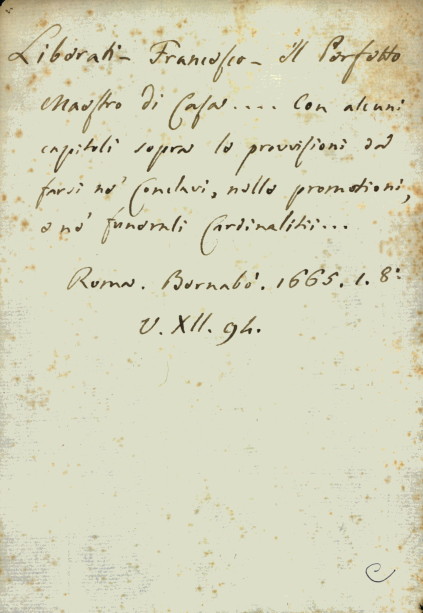 Liberati - Francesco - Il Perfetto
Maestro di Casa .... Con alcuni
capitoli sopra le provvisioni da
farsi ne' Conclavi, nelle promotioni,
e ne' funerali Cardinalitii ...
Roma. Bernabò. 1665. 1. 8:
V. XII. 94.
C